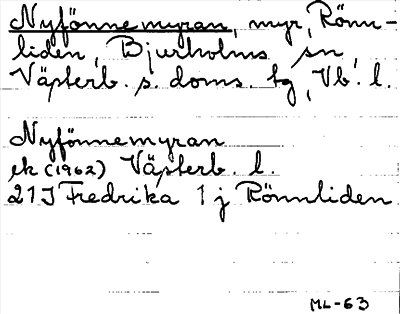 Nyfönnemyran, myr, Rönn-
liden, Bjurholms sn,
Västerb. s. doms. tg, Vb. l.
Nyfönnemyran
ek (1962) Västerb. l.
21J Fredrika 1 j Rönnliden
ML-63